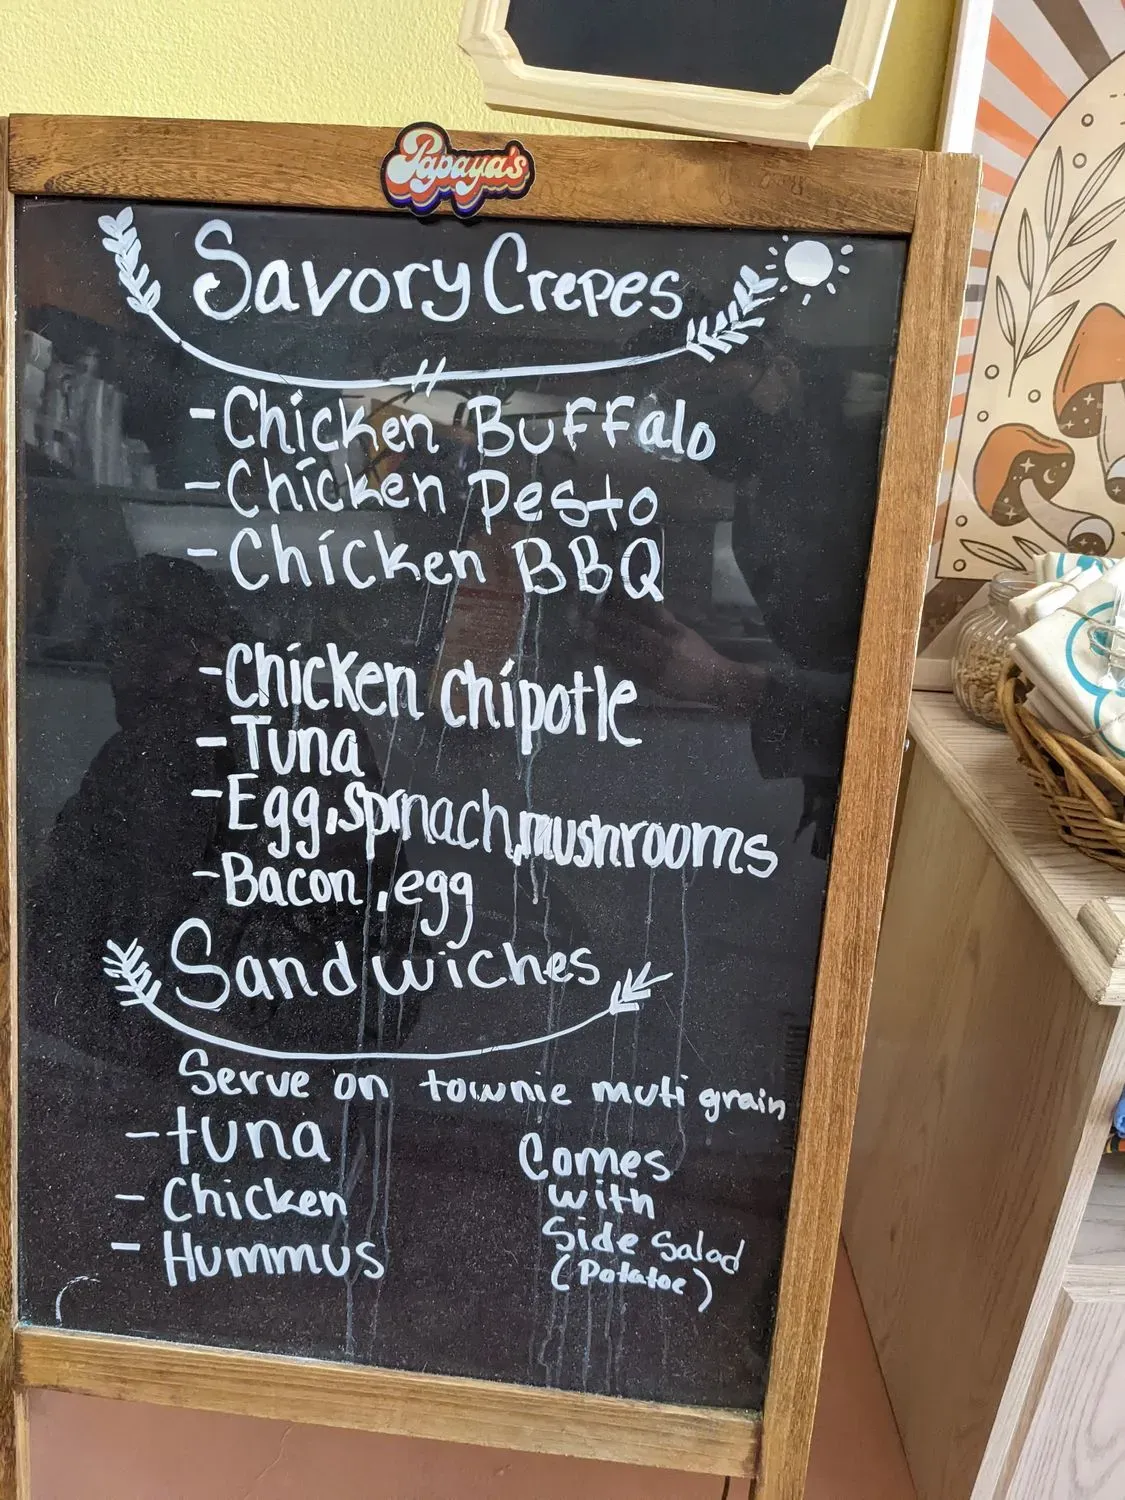 Papaya's
Savory Crepes
- Chicken Buffalo
- Chicken Pesto
- Chicken BBQ
- Chicken chipotle
- Tuna
- Egg, spinach, mushrooms
- Bacon, egg
Sandwiches
Serve on townie muti grain
- tuna
- Chicken
- Hummus
Comes
with
Side Salad
(Potatoe)